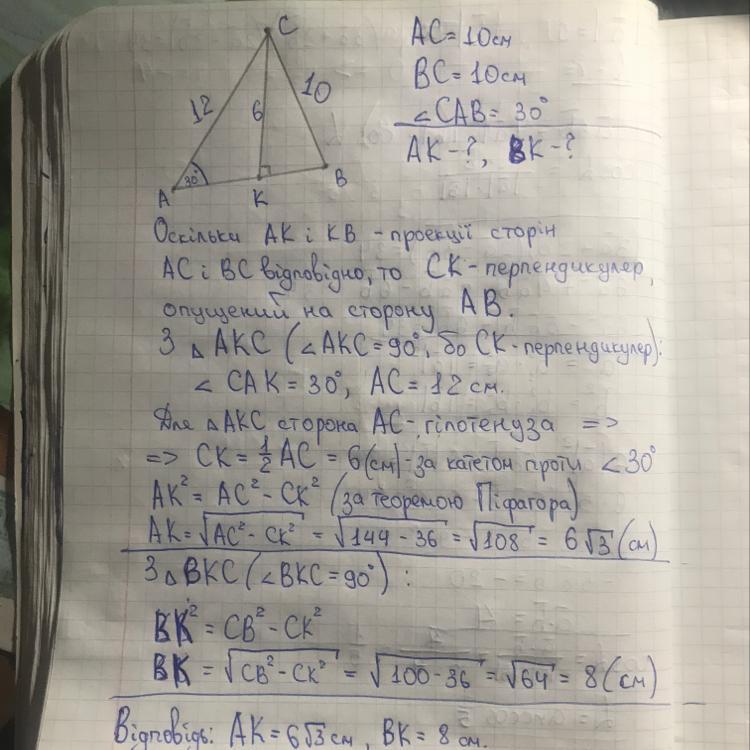 C
AC = 10см
BC = 10см
∠CAB = 30°
AK - ?, BK - ?
12
6
10
30°
A
K
B
Оскільки AK і KB - проекції сторін
AC і BC відповідно, то CK - перпендикулер,
опущений на сторону AB.
З △AKC (∠AKC = 90°, бо CK - перпендикулер):
∠CAK = 30°, AC = 12 см.
Для △AKC сторона AC - гіпотенуза =>
=> CK = 1/2 AC = 6 (см) - за катетом проти ∠30°
AK² = AC² - CK² (за теоремою Піфагора)
AK = √(AC² - CK²) = √(144 - 36) = √108 = 6√3 (см)
З △BKC (∠BKC = 90°):
BK² = CB² - CK²
BK = √(CB² - CK²) = √(100 - 36) = √64 = 8 (см)
Відповідь: AK = 6√3 см, BK = 8 см.